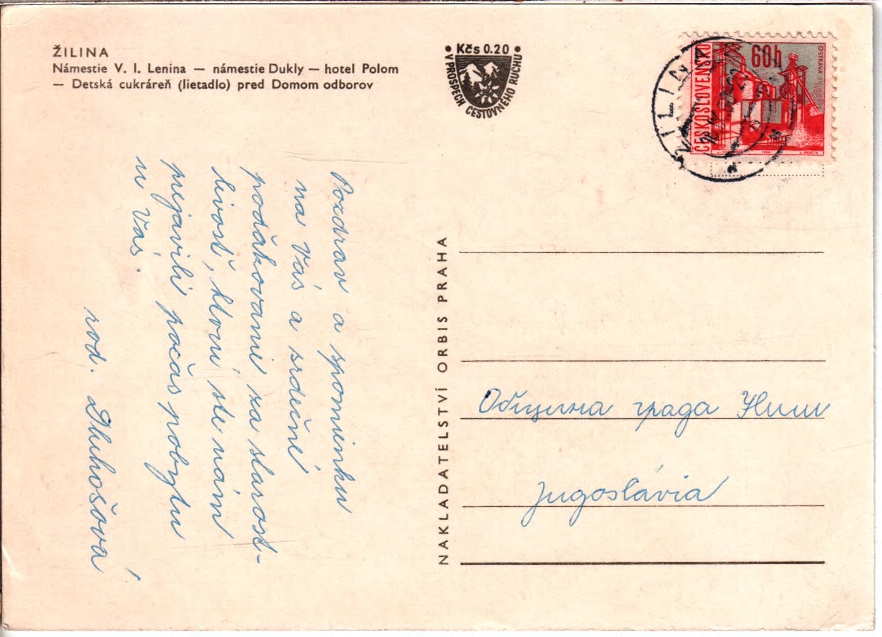 ŽILINA
Námestie V. I. Lenina — námestie Dukly — hotel Polom
— Detská cukráreň (lietadlo) pred Domom odborov
• Kčs 0.20 •
V PROSPECH CESTOVNÉHO RUCHU
60h
ČESKOSLOVENSKO
OSTRAVA
ŽILINA
Pozdrav a spomienku
na Vás a srdečné
poďakovanie za starost-
livosť, ktorú ste nám
prejavili počas pobytu
u Vás.
rod. Dluhošová
NAKLADATELSTVÍ ORBIS PRAHA
Општина града Ниш
Jugoslávia